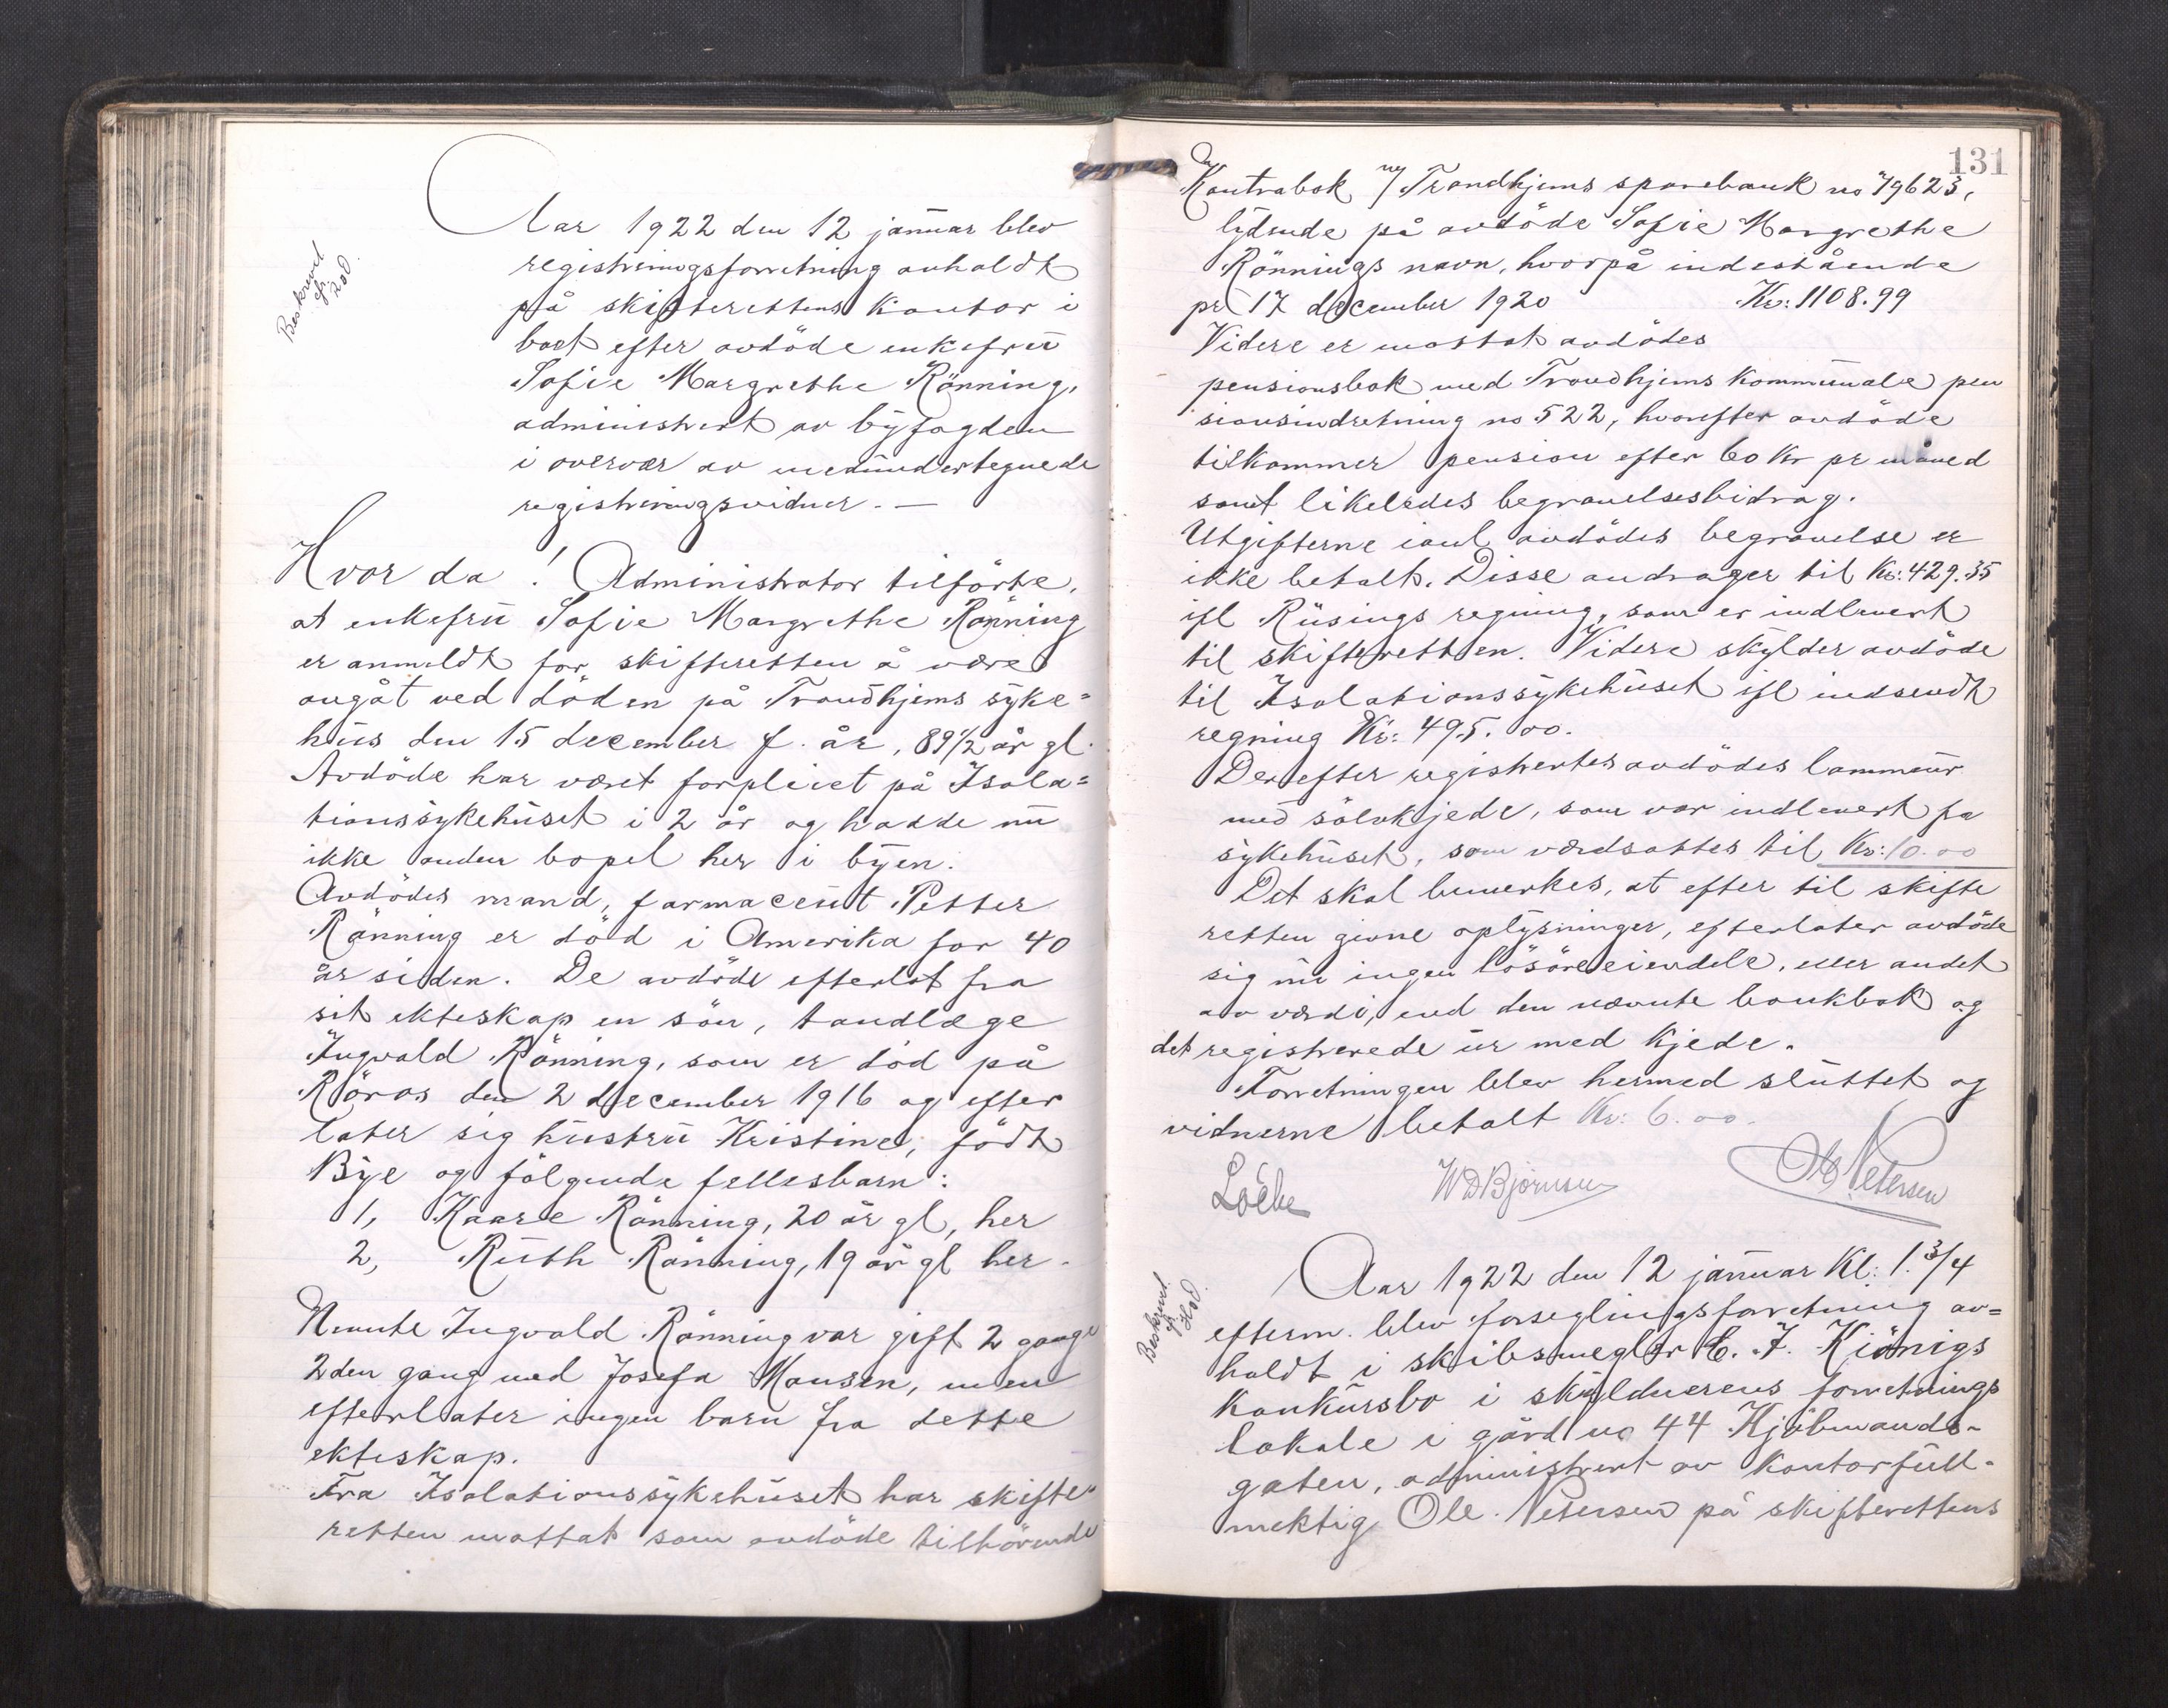 Beskrevet
fr.
20d.
Aar 1922 den 12 januar blev
registreringsforretning avholdt
på skifterettens kontor i
boet efter avdöde enkefru
Sofie Margrethe Rönning,
administrert av byfogden
i overvær av medundertegnede
registreringsvidner. —
Hvor da! Administrator tilförte,
at enkefru Sofie Margrethe Rönning
er anmeldt for skifteretten å være
avgåt ved döden på Trondhjems syke=
hus den 15 december f. år, 89 1/2 år gl.
Avdöde har været forpleiet på Isola=
tionssykehuset i 2 år og hadde nu
ikke anden bopel her i byen.
Avdödes mand, farmaceut Petter
Rönning er död i Amerika for 40
år siden. De avdöde efterlot fra
sit ekteskap en sön, tandlæge
Ingvald Rönning, som er död på
Röros den 2 december 1916 og efter
later sig hustru Kristine, födt
Bye og fölgende fellesbarn:
1, Kaare Rönning, 20 år gl, her
2, Ruth Rönning, 19 år gl her.
Nevnte Ingvald Rönning var gift 2 gange
2den gang med Josefa Hansen, men
efterlater ingen barn fra dette
ekteskap.
Fra Isolationssykehuset har skifte=
retten mottat som avdöde tilhörende
131
Kontrabok m/ Trondhjems sparebank no 79623,
lydende på avdöde Sofie Margrethe
Rönnings navn, hvorpå indestående
pr 17 december 1920 Kr: 1108.99
Videre er mottat avdödes
pensionsbok med Trondhjems kommunale pen
sionsindretning no 522, hvorefter avdöde
tilkommer pension efter 60 Kr pr måned
samt likeledes begravelsesbidrag.
Utgifterne ianl. avdödes begravelse er
ikke betalt. Disse andrager til Kr: 429.35
ifl Rüsings regning, som er indlevert
til skifteretten. Videre skylder avdöde
til Isolationssykehuset ifl indsendt
regning Kr: 495.00.
Derefter registrertes avdödes lommeur
med sölvkjede, som var indlevert fra
sykehuset, som verdsattes til Kr: 10.00
Det skal bemerkes, at efter til skifte
retten givne oplysninger, efterlater avdöde
sig nu ingen lösöreeiendele, eller andet
av verdi, end den nævnte bankbok og
det registrerede ur med kjede.
Forretningen blev hermed sluttet og
vidnerne betalt Kr: 6.00.
WDBjörnsen
Petersen
Beskrevet
fr.
Aar 1922 den 12 januar Kl: 1 3/4
efterm. blev forseglingsforretning av=
holdt i skibsmegler C. F. Kiönigs
konkursbo i skyldnerens forretnings
lokale i gård no 44 Kjöbmands-
gaten, administrert av kontorfull-
mektig Ole Petersen på skifterettens